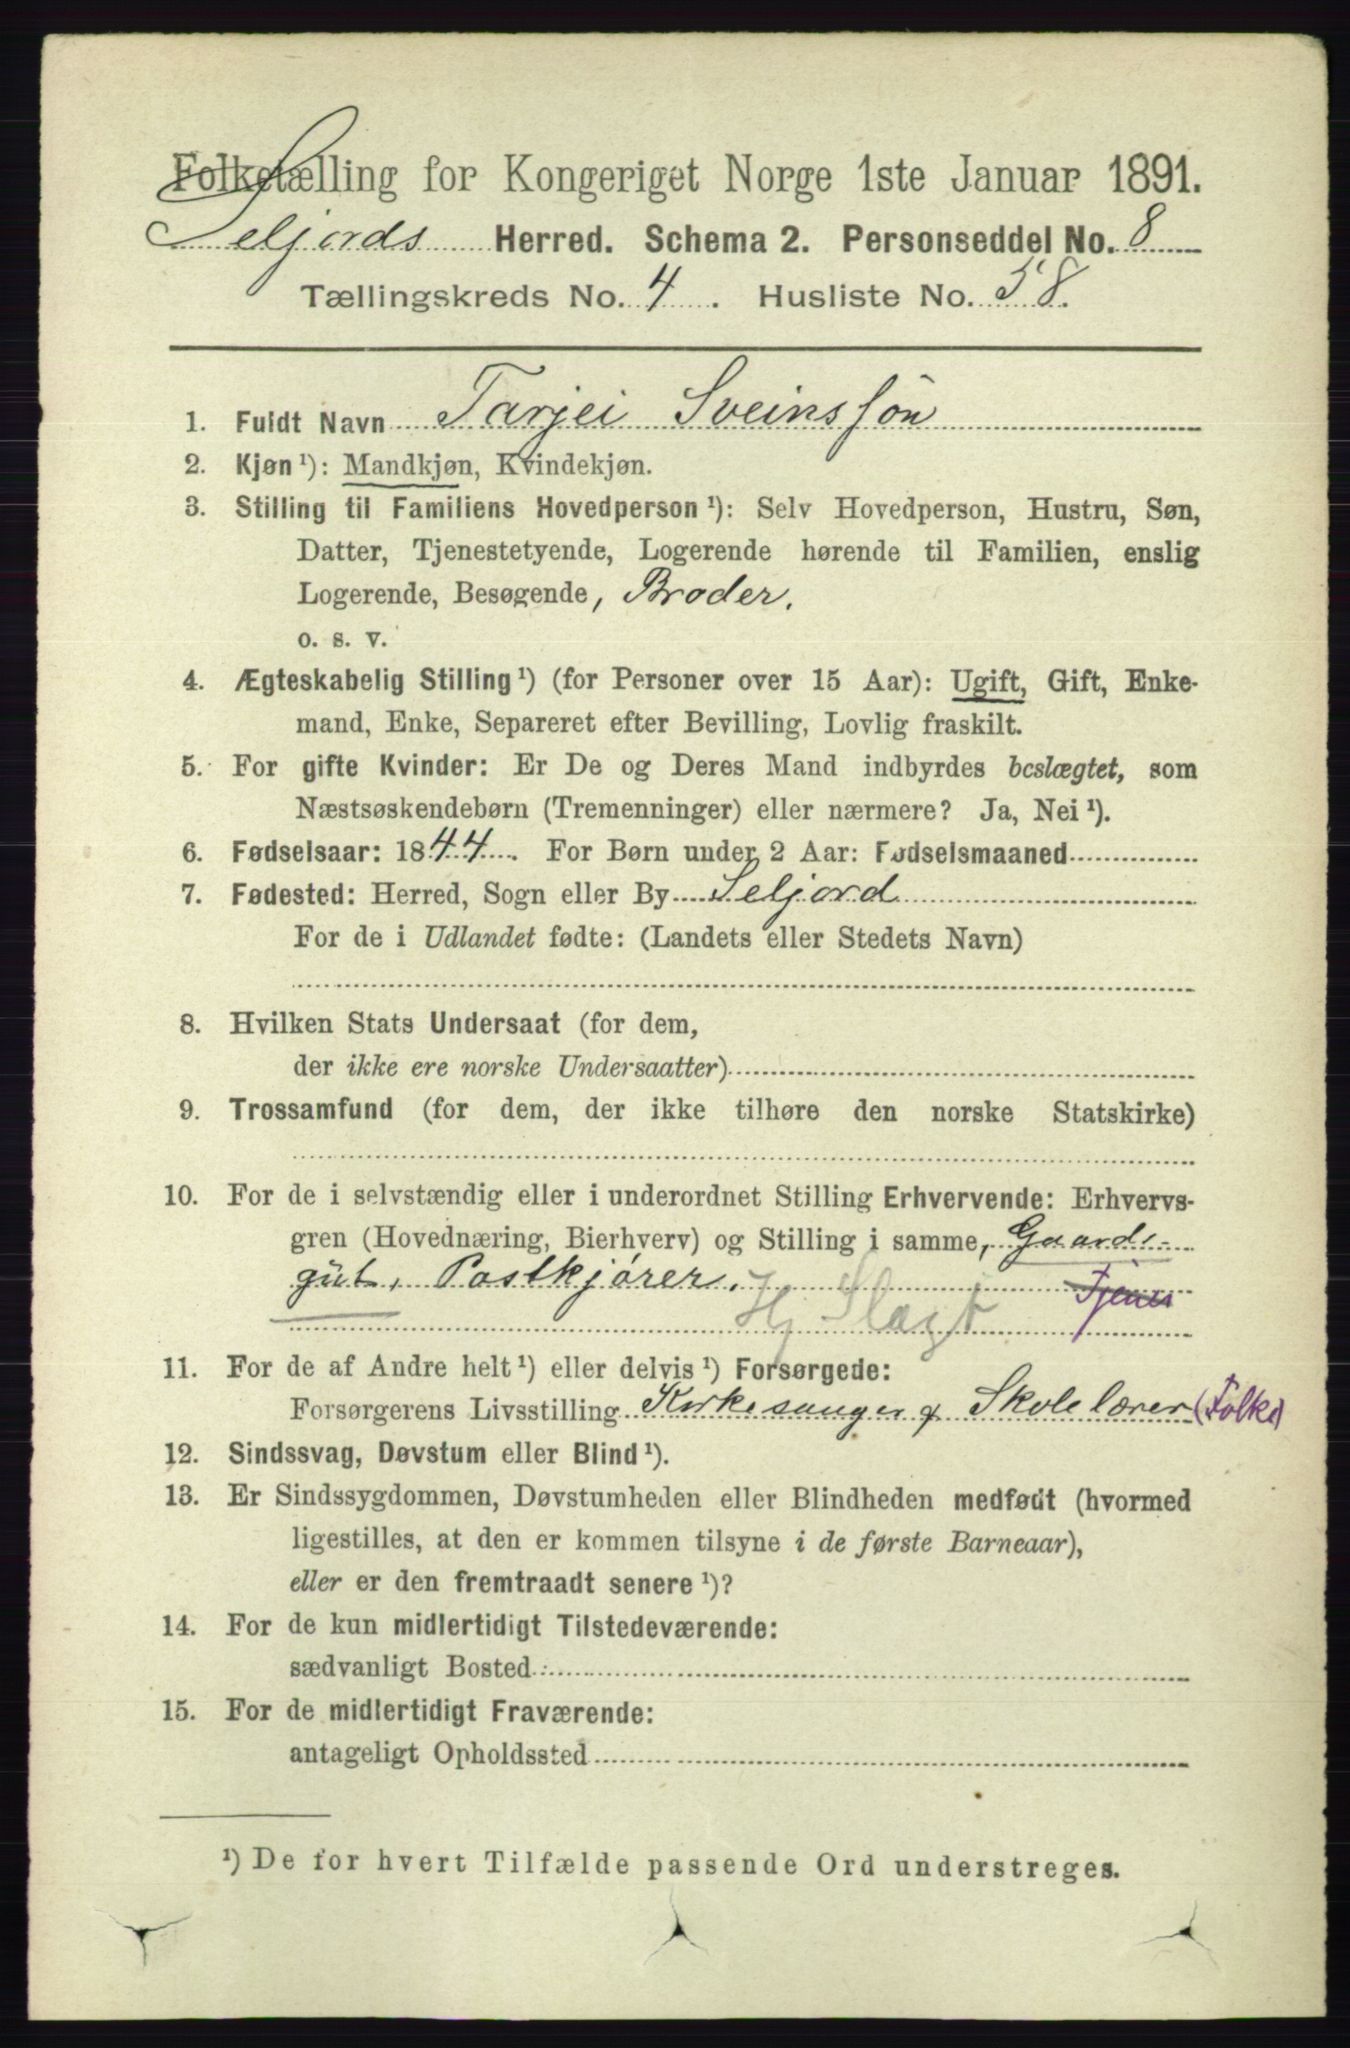 Folketælling for Kongeriget Norge 1ste Januar 1891.
Seljords Herred. Schema 2. Personseddel No. 8
Tællingskreds No. 4. Husliste No. 58.
1. Fuldt Navn Tarjei Sveinssøn
2. Kjøn ¹): Mandkjøn, Kvindekjøn.
3. Stilling til Familiens Hovedperson ¹): Selv Hovedperson, Hustru, Søn,
Datter, Tjenestetyende, Logerende hørende til Familien, enslig
Logerende, Besøgende, Broder.
o. s. v.
4. Ægteskabelig Stilling ¹) (for Personer over 15 Aar): Ugift, Gift, Enke-
mand, Enke, Separeret efter Bevilling, Lovlig fraskilt.
5. For gifte Kvinder: Er De og Deres Mand indbyrdes beslægtet, som
Næstsøskendebørn (Tremenninger) eller nærmere? Ja, Nei ¹).
6. Fødselsaar: 1844. For Børn under 2 Aar: Fødselsmaaned
7. Fødested: Herred, Sogn eller By Seljord
For de i Udlandet fødte: (Landets eller Stedets Navn)
8. Hvilken Stats Undersaat (for dem,
der ikke ere norske Undersaatter)
9. Trossamfund (for dem, der ikke tilhøre den norske Statskirke)
10. For de i selvstændig eller i underordnet Stilling Erhvervende: Erhvervs-
gren (Hovednæring, Bierhverv) og Stilling i samme, Gaards-
gut, Postkjører. Tjener
Hj Slagt
11. For de af Andre helt ¹) eller delvis ¹) Forsørgede:
Forsørgerens Livsstilling Kirkesanger & Skolelærer (Folke)
12. Sindssvag, Døvstum eller Blind ¹).
13. Er Sindssygdommen, Døvstumheden eller Blindheden medfødt (hvormed
ligestilles, at den er kommen tilsyne i de første Barneaar),
eller er den fremtraadt senere ¹)?
14. For de kun midlertidigt Tilstedeværende:
sædvanligt Bosted
15. For de midlertidigt Fraværende:
antageligt Opholdssted
¹) De for hvert Tilfælde passende Ord understreges.